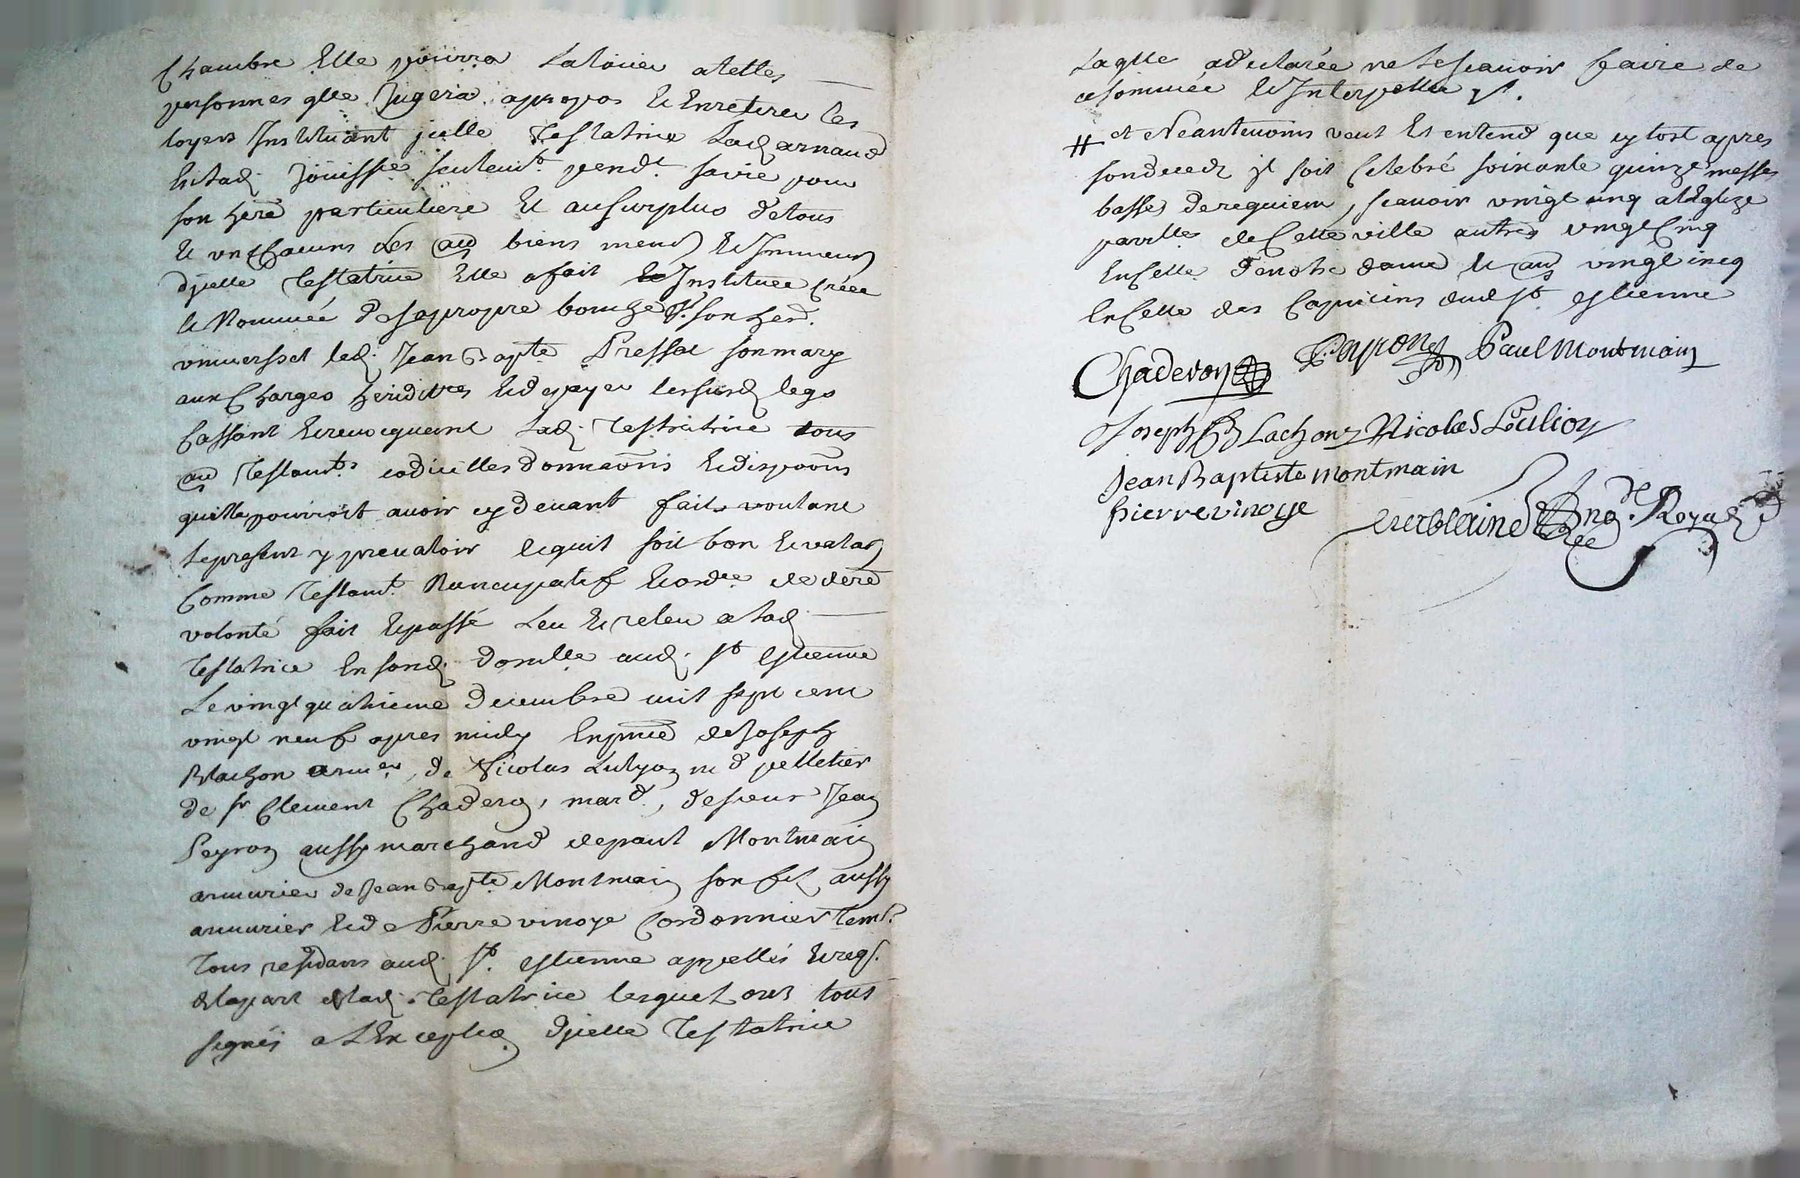 Chambre Elle pourra La louer a telles
personnes qlle Jugera apropos Et Enretirer les
loyers Instituant jcelle Testatrice Lad. arnaud
Et lad. Jouissce seulemt. pendt. sa vie pour
son here particuliere Et au surplus de tous
Et un Chacuns Les au biens meub Et Immeub
djcelle Testatrice Elle a fait Institué Créé
Et Nommée de sa propre bouche pr. son her.
universsel led. Jean Bapte Pressat son mary
aux Charges hereditres Et de payer les susd. legs
Cassant Et revocquant Lad. Testatrice tous
au Testamts codicilles donnaons Et dispoons
quelle pourroit avoir cy devant faits voulant
Le present y prevaloir Lequil soit bon Et valab
Comme Testamt. Nuncupatif Et ordre de dere
volonté fait Et passé Leu Et releu a Lad.
Testatrice En sond. domille aud. St Estienne
Le vingt quatrieme decembre mil sept cent
vingt neuf apres midy En pnce de Joseph
Blachon armer, de Nicolas Lulyon md pelletier
de sr Clement Chaderon, mard., de sieur Jean
Peyron aussy marchand de paul Montmain
armurier de Jean Bapte Montmain son fils aussy
armurier Et de Pierre vinoye Cordonnier tems.
Tous residans aud. St. Estienne appellés Et reqs.
de la part de lad. Testatrice lesquels ont tous
signés a LException djcelle Testatrice
Laqlle a declarée ne le scavoir faire de
ce sommée Et Interpellée
# et Neantmoins veut Et entend que sy tost apres
son deced jl soit Celebré soixante quinze messes
basses de requiem, scavoir vingt cinq a lEglize
parrlle de Cette ville autres vingt Cinq
En Celle de notre dame Et au vingt cinq
En Celle des Capucins dud. St. Estienne
Chaderon Peyron Paul Montmain
Joseph Blachon Nicolas Loulion
Jean Baptiste montmain
pierre vinoye verblaine Nore Royal